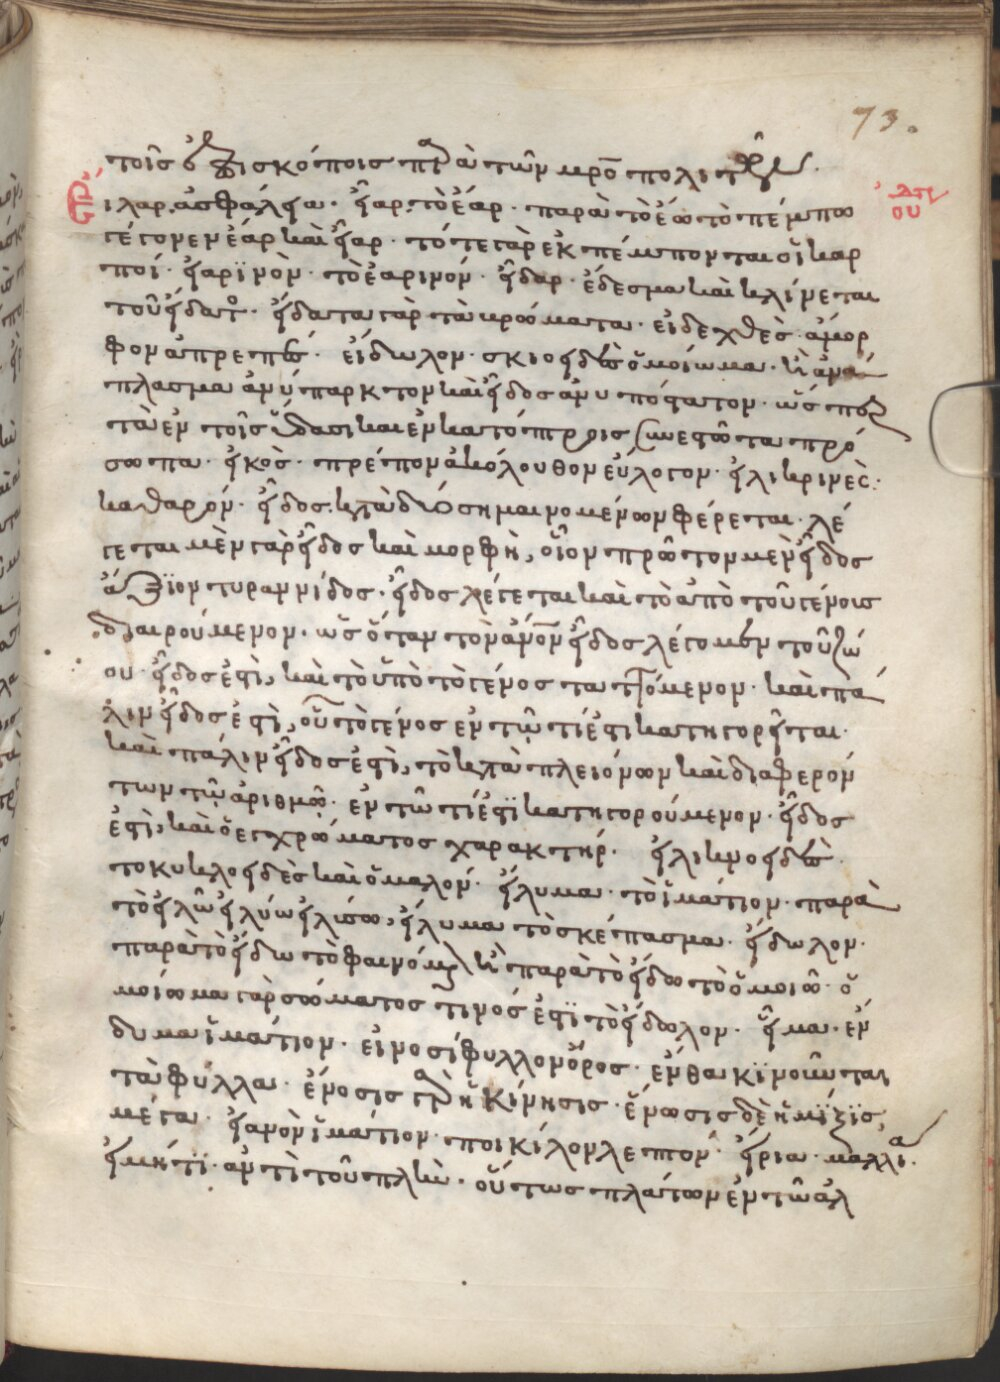 73.
τοῖς ἐπισκόποις παρὰ τῶν μητροπολιτῶν.
εἰλαρ. ἀσφάλεια. εἶαρ. τὸ ἔαρ. παρὰ τὸ ἐῶ τὸ πέμπω
γέγονεν ἔαρ καὶ εἶαρ. τότε γὰρ ἐκπέμπονται οἱ καρ
ποί. εἰαρϊνὸν. τὸ ἐαρινόν. εἶδαρ. ἔδεσμα καὶ κλίνεται
τοῦ εἴδατος. εἴδατα γὰρ τὰ βρώματα. εἰδεχθὲς. ἄμορ
φον ἀπρεπὲς. εἴδωλον. σκιοειδὲς ὁμοίωμα. ἢ ἀνά
πλασμα ἀνύπαρκτον καὶ εἶδος ἀνυπόστατον. ὥσπερ
τὰ ἐν τοῖς ὕδασι καὶ ἐν κατόπτροις συνεστῶτα πρό
σωπα. εἰκὸς. πρέπον ἀκόλουθον εὔλογον. εἰλικρινὲς.
καθαρόν. εἶδος. κατὰ δύο σημαινομένων φέρεται. λέ
γεται μὲν γὰρ εἶδος καὶ μορφὴ, οἷον πρῶτον μὲν εἶδος
ἄξϊον τυραννίδος. εἶδος λέγεται καὶ τὸ ἀπὸ τοῦ γένους
διαιρούμενον. ὡς ὅταν τὸν ἄνον εἶδος λέγομεν τοῦ ζώ
ου. εἶδος ἐστὶ, καὶ τὸ ὑπὸ τὸ γένος ταττόμενον. καὶ πά
λιν εἶδος ἐστὶ, οὗ τὸ γένος ἐν τῷ τί ἐστι κατηγορεῖται.
καὶ πάλιν εἶδος ἐστὶ, τὸ κατὰ πλειόνων καὶ διαφερόν
των τῷ ἀριθμῷ. ἐν τῷ τί ἐστϊ κατηγορούμενον. εἶδος
ἐστὶ, καὶ ὁ ἐκ χρώματος χαρακτήρ. εἰλικνοειδὲς.
τὸ κυκλοειδὲς καὶ ὁμαλόν. εἴλυμα. τὸ ἱμάτιον. παρὰ
τὸ εἰλῶ εἰλύω εἰλίσω, εἴλυμα τὸ σκέπασμα. εἴδωλον.
παρὰ τὸ εἴδω τὸ φαινόμενον ἢ παρὰ τὸ εἴδω τὸ ὁμοιῶ. ὁ
μοίωμα γὰρ σώματος τινός ἐστϊ τὸ εἴδωλον. εἷμα. ἔν
δυμα ἱμάτιον. εἰνοσίφυλλον ὄρος. ἔνθα κϊνοῦνται
τὰ φύλλα. ἔνοσις γὰρ ἡ κίνησις. ἕνωσις δὲ ἡ μίξϊς,
μέγα. εἱανὸν ἱμάτιον. ποικίλον λεπτόν. εἴρια. μαλλία.
εἰ μήτϊ. ἀντὶ τοῦ πλὴν. οὕτως πλάτων ἐν τῷ ἀλ